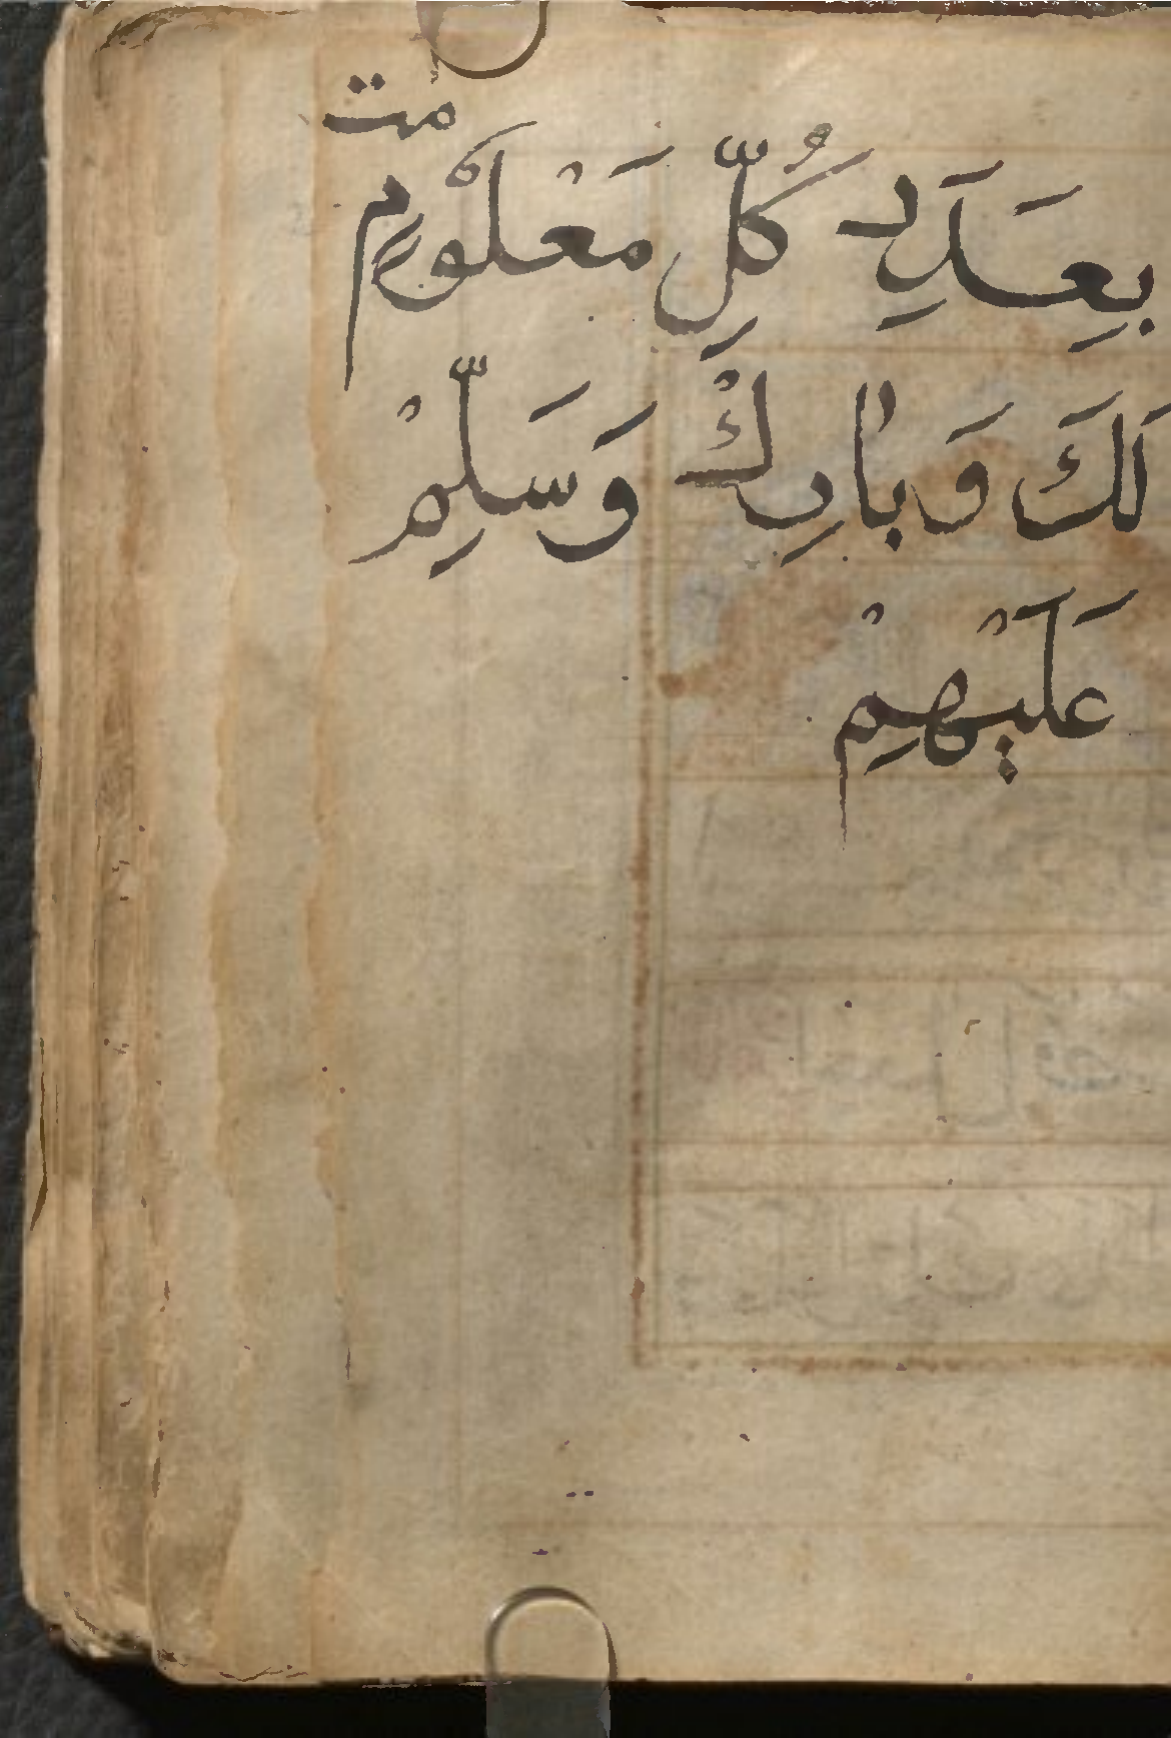 مت
بِعَدَدِ كُلِّ مَعْلُوْمٍ
لَكَ وَبَارِكْ وَسَلِّمْ
عَلَيْهِمْ